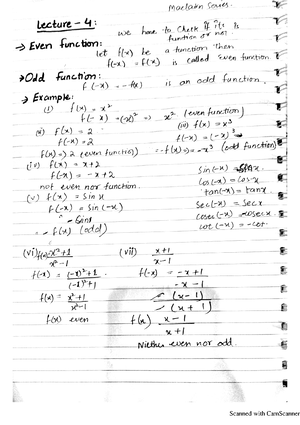 Maclarin Series.
Lecture - 4:
we have to check if its is
function or not.
→ Even function:
let f(x) be a function then
f(-x) = f(x) is called Even function.
→ Odd function:
f(-x) = -f(x) is an odd function.
→ Example:
(i) f(x) = x²
f(-x) = (-x)² => x² (even function)
(ii) f(x) = 2
f(-x) = 2
f(x) => 2 (even function)
(iii) f(x) = x³
f(-x) = (-x)³
-f(x) => -x³ (odd function)
(iv) f(x) = x+2
f(-x) = -x+2
not even nor function.
(v) f(x) = Sinx
f(-x) = Sin(-x)
= -Sinx
= -f(x) (odd)
Sin(-x) = -Sinx.
Cos(-x) = Cos x
tan(-x) = tanx.
Sec(-x) = Secx
Cosec(-x) = -Cosecx.
Cot(-x) = -Cot.
(vi) f(x) = x²+1
x²-1
f(-x) = (-x)²+1
(-x)²+1
f(x) = x²+1
x²-1
f(x) even
(vii) x+1
x-1
f(-x) = -x+1
-x-1
- (x-1)
- (x+1)
f(x) x-1
x+1
Niether even nor odd.
Scanned with CamScanner